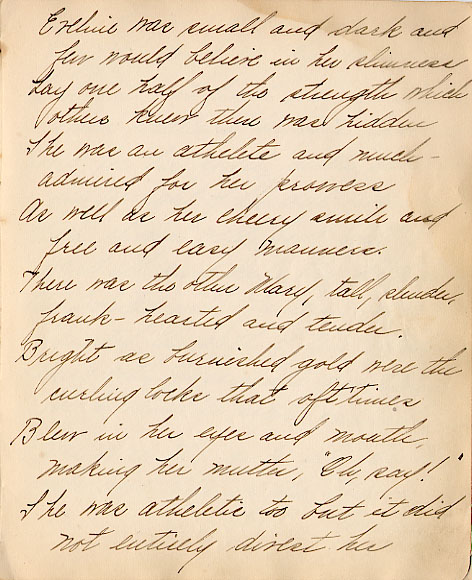 Eveline was small and dark and
few would believe in her slimness
Lay one half of the strength which
others knew there was hidden
She was an athelete and much-
admired for her prowess
As well as her cheery smile and
free and easy manners.
There was the other Mary, tall, slender,
frank-hearted and tender.
Bright as burnished gold were the
curling locks that oft times
Blew in her eyes and mouth,
making her mutter, "Oh, say!"
She was atheletic too but it did
not entirely divest her